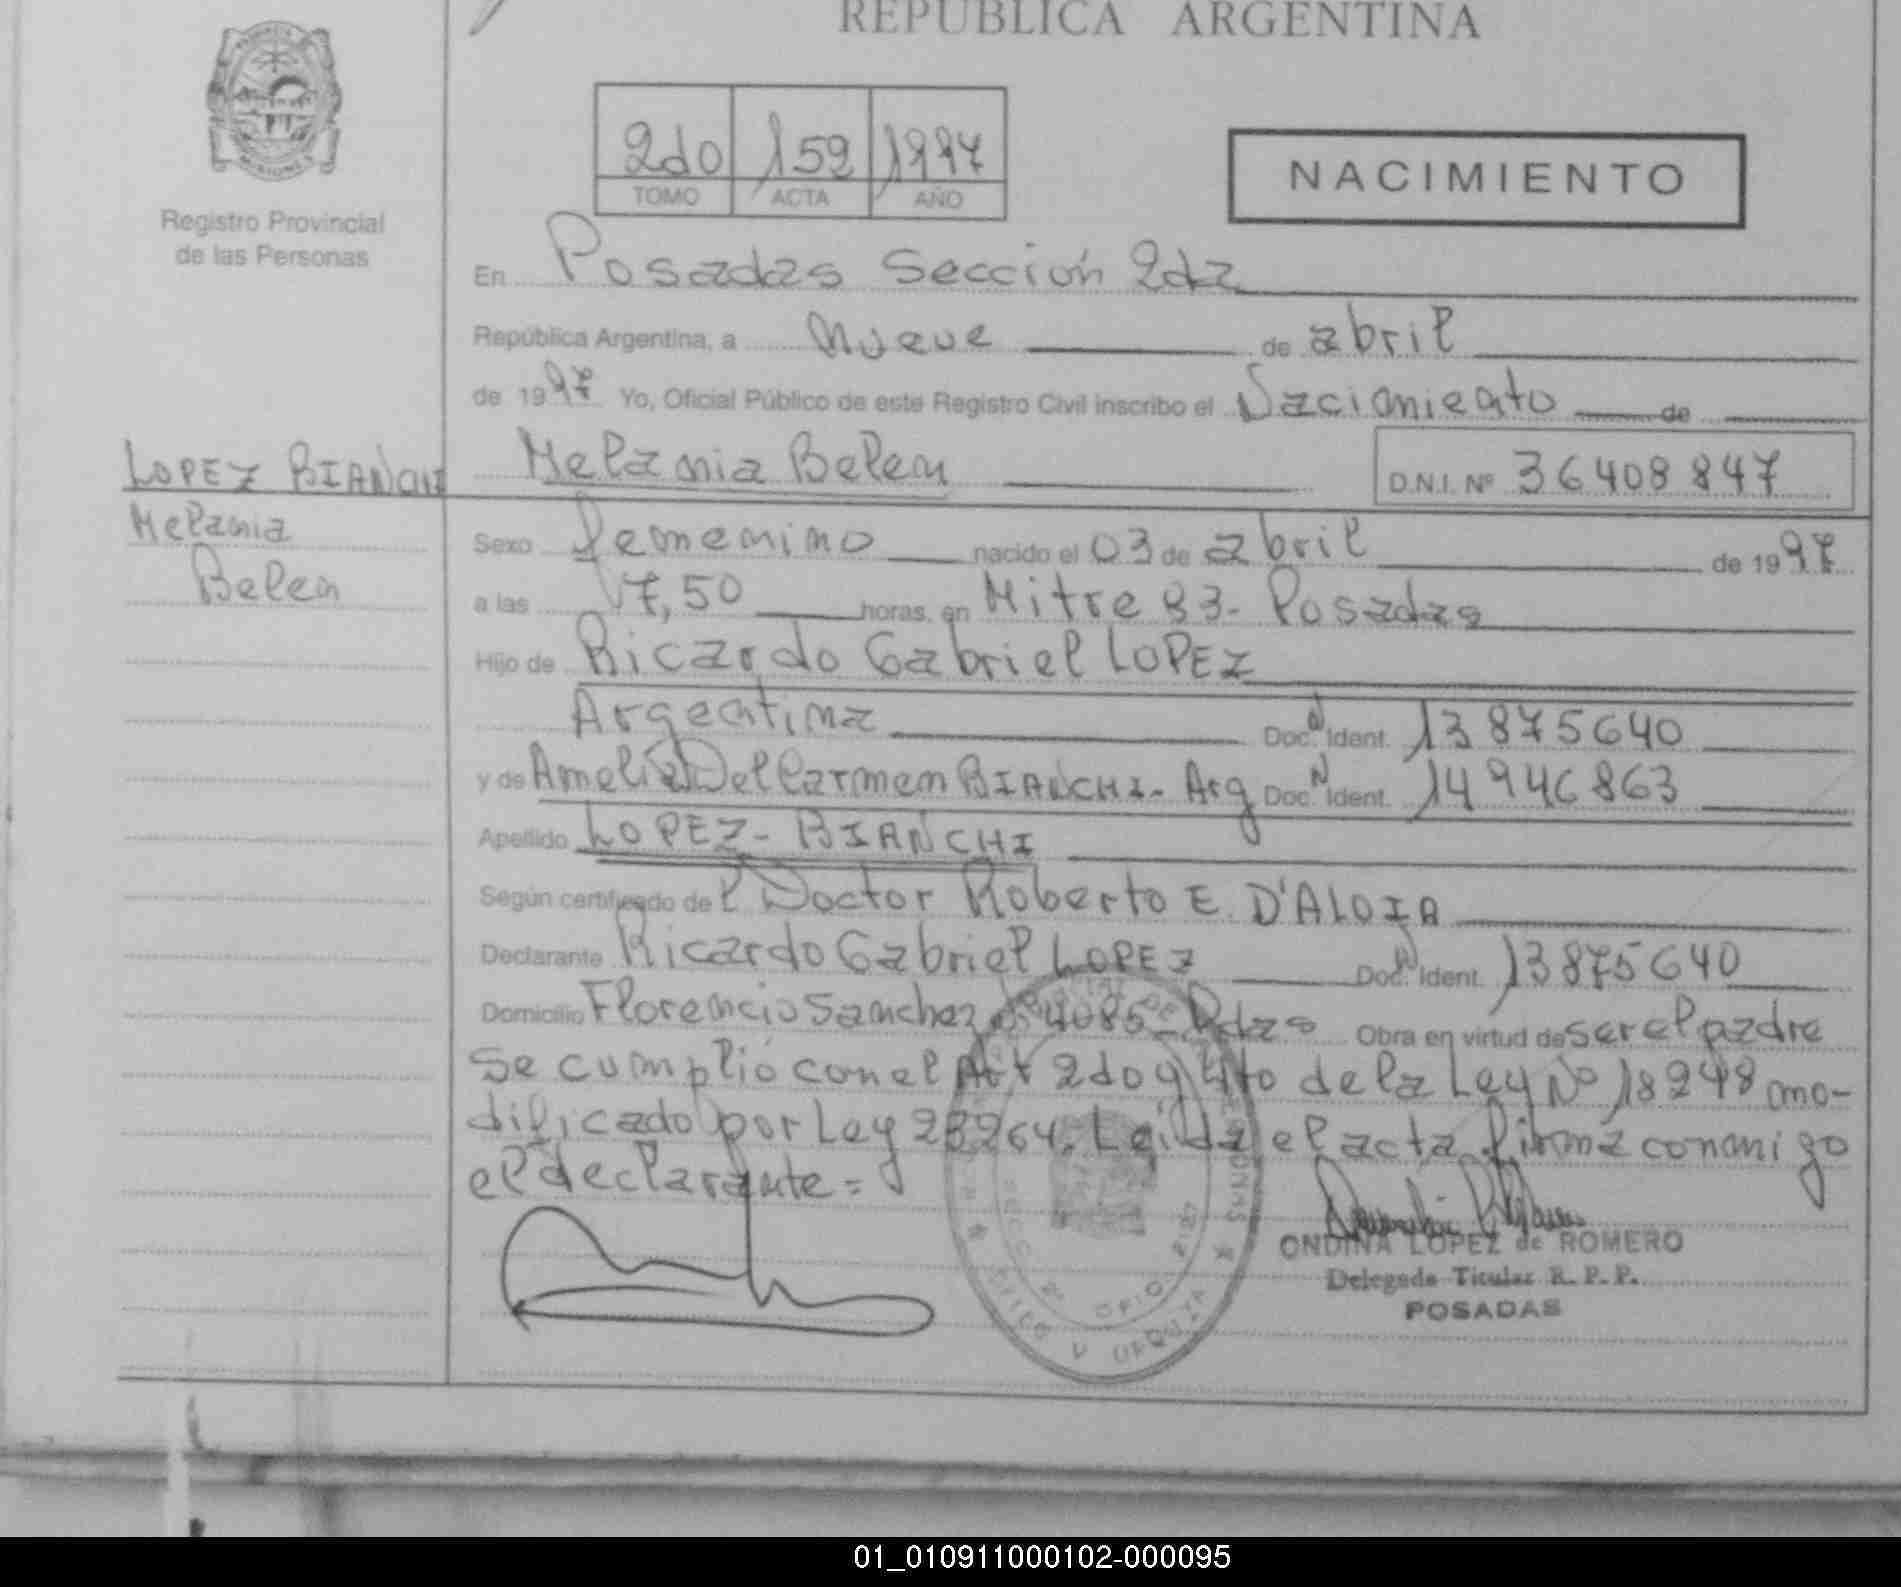 REPUBLICA ARGENTINA
MISIONES
Registro Provincial
de las Personas
2do 159 1997
TOMO ACTA AÑO
NACIMIENTO
En Posadas Sección 2da
República Argentina, a Nueve de abril
de 1997 Yo, Oficial Público de este Registro Civil inscribo el Nacimiento de
Melania Belen D.N.I. Nº 36408847
LOPEZ BIANCHI
Melania
Belen
Sexo Femenino nacido el 03 de abril de 1997
a las 17,50 horas, en Mitre 83- Posadas
Hijo de Ricardo Gabriel LOPEZ
Argentina Doc. Ident. 13875640
y de Amelia Del Carmen BIANCHI- Arg Doc. Ident. 14946863
Apellido LOPEZ- BIANCHI
Según certificado del Doctor Roberto E. D'ALOIA
Declarante Ricardo Gabriel LOPEZ Doc. Ident. 13875640
Domicilio Florencio Sanchez 4085- Pdas Obra en virtud de ser el padre
Se cumplió con el Art 2do y 4to de la Ley Nº 18248 mo-
dificado por Ley 23264. Leída el acta firma conmigo
el declarante=
ONDINA LOPEZ de ROMERO
Delegada Titular R. P. P.
POSADAS
01_010911000102-000095